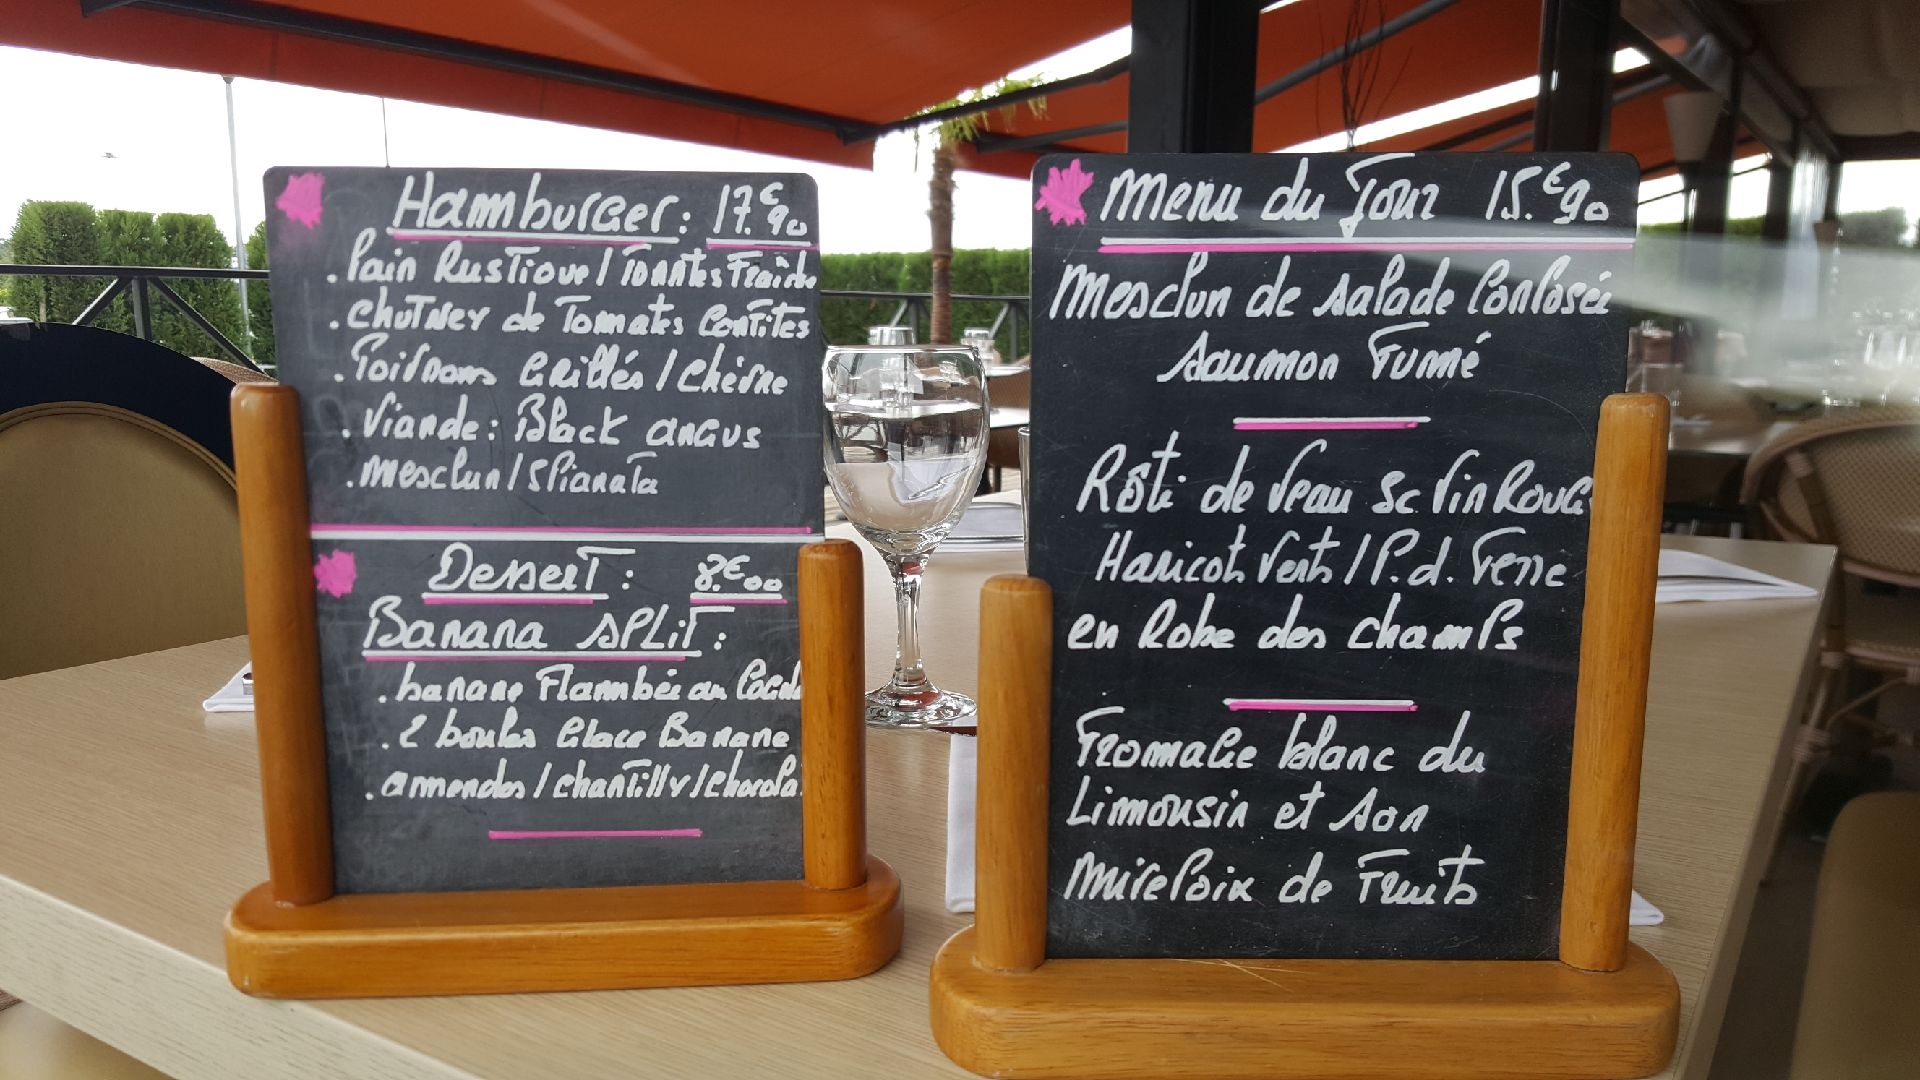 Hamburger: 17.€90
. Pain Rustique / Tomates Fraîche
. Chutney de Tomates Confites
. Poivrons Grillés / Chèvre
. Viande: Black angus
. mesclun / Spianata
Dessert: 8.€00
Banana split:
. banane Flambée au
. 2 boules Glace Banane
. amendes / chantilly / Chocola
Menu du Jour 15.€90
Mesclun de salade Composée
saumon Fumé
Rôti de Veau Sc. Vin Roug
Haricot Verts / P. d. Terre
en Robe des champs
Fromage blanc du
Limousin et son
Mirepoix de Fruits